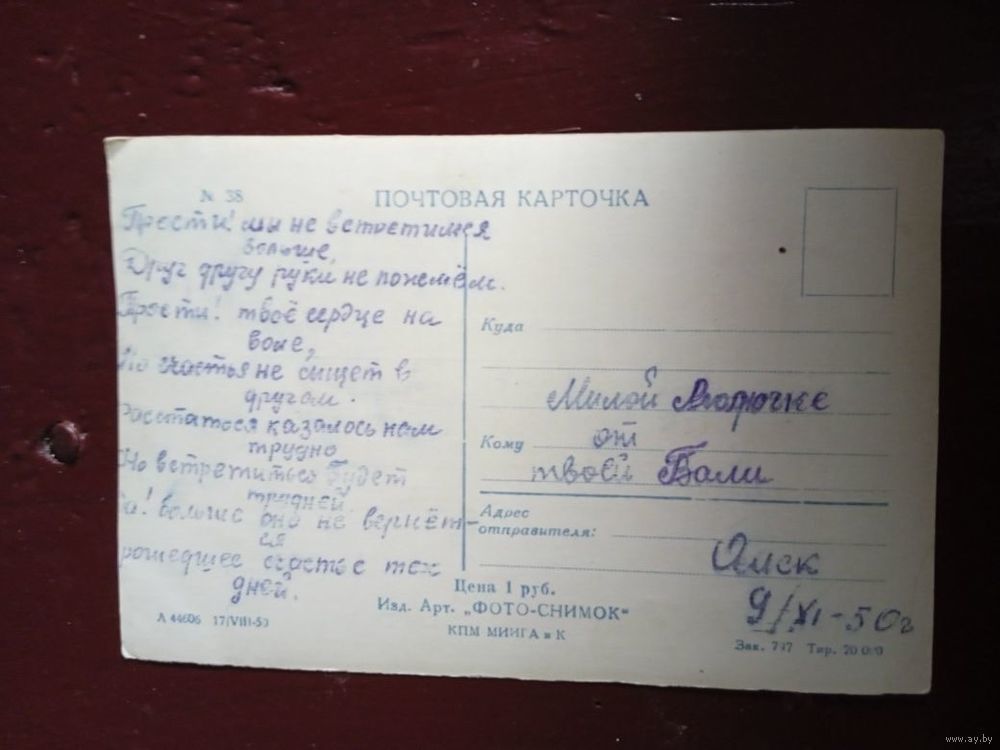 № 38
ПОЧТОВАЯ КАРТОЧКА
Прости! мы не встретимся
больше,
Друг другу руки не пожмём.
Прости! твоё сердце на
воле,
Но счастья не сыщет в
другом.
Расстаться казалось нам
трудно
Но встретиться будет
трудней.
Да! больше оно не вернёт-
ся
прошедшее счастье тех
дней.
Куда
Милой
Кому от
твоей Вали
Адрес
отправителя:
Омск
9/XI-50г
Цена 1 руб.
Изд. Арт. „ФОТО-СНИМОК“
КПМ МИИГА и К
А 44606 17/VIII-50
Зак. 797 Тир. 20 000
www.ay.by